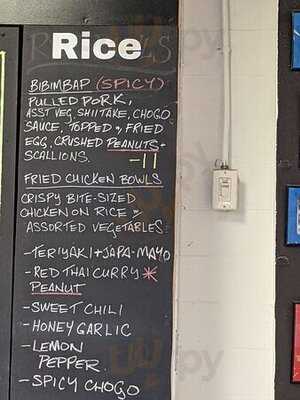 Rice
BIBIMBAP (SPICY)
PULLED PORK,
ASST VEG, SHIITAKE, CHOGO
SAUCE, TOPPED w/ FRIED
EGG, CRUSHED PEANUTS +
SCALLIONS. -11
FRIED CHICKEN BOWLS
CRISPY BITE-SIZED
CHICKEN ON RICE w/
ASSORTED VEGETABLES
- TERIYAKI + JAPA-MAYO
- RED THAI CURRY *
PEANUT
- SWEET CHILI
- HONEY GARLIC
- LEMON
PEPPER
- SPICY CHOGO